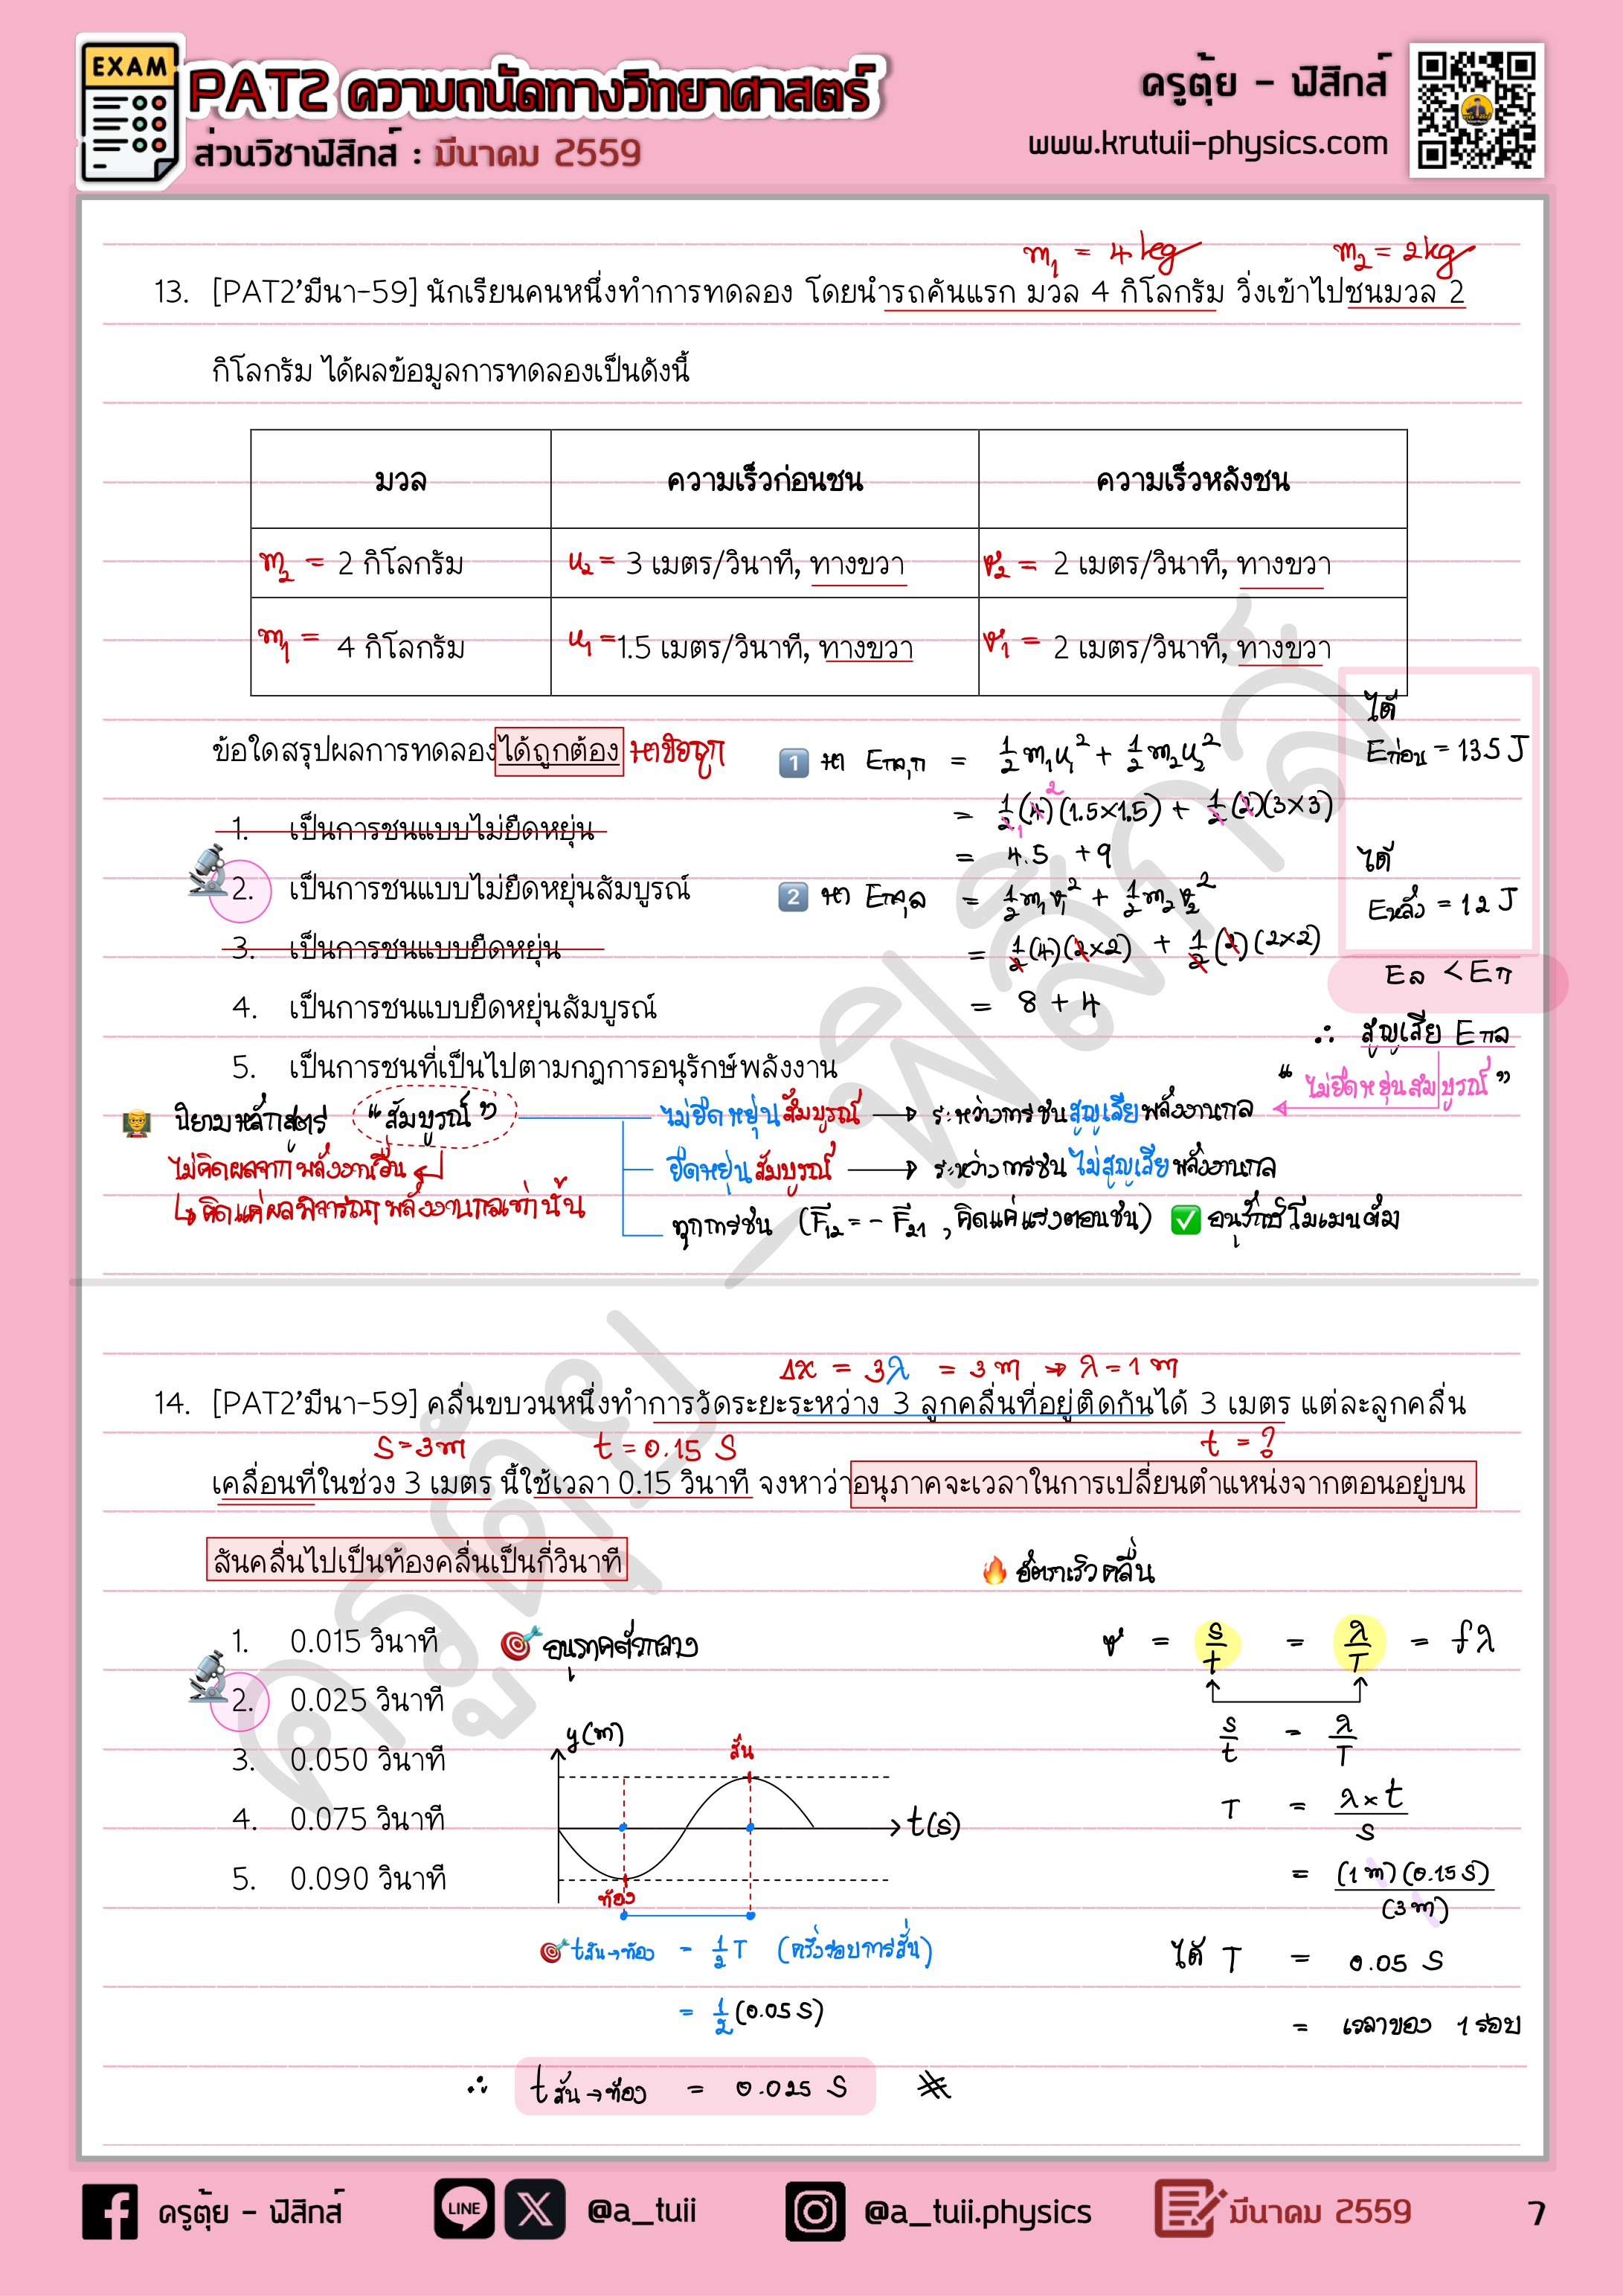 EXAM
PAT2 ความถนัดทางวิทยาศาสตร์
ส่วนวิชาฟิสิกส์ : มีนาคม 2559
ครูตุ้ย - ฟิสิกส์
www.krutuii-physics.com
m₁ = 4 kg m₂ = 2 kg
13. [PAT2'มีนา-59] นักเรียนคนหนึ่งทำการทดลอง โดยนำรถคันแรก มวล 4 กิโลกรัม วิ่งเข้าไปชนมวล 2
กิโลกรัม ได้ผลข้อมูลการทดลองเป็นดังนี้
มวล ความเร็วก่อนชน ความเร็วหลังชน
m₂ = 2 กิโลกรัม u₂ = 3 เมตร/วินาที, ทางขวา v₂ = 2 เมตร/วินาที, ทางขวา
m₁ = 4 กิโลกรัม u₁ = 1.5 เมตร/วินาที, ทางขวา v₁ = 2 เมตร/วินาที, ทางขวา
ข้อใดสรุปผลการทดลองได้ถูกต้อง หาข้อถูก
1. เป็นการชนแบบไม่ยืดหยุ่น
2. เป็นการชนแบบไม่ยืดหยุ่นสัมบูรณ์
3. เป็นการชนแบบยืดหยุ่น
4. เป็นการชนแบบยืดหยุ่นสัมบูรณ์
5. เป็นการชนที่เป็นไปตามกฎการอนุรักษ์พลังงาน
1 หา Eกล,ก = ½m₁u₁² + ½m₂u₂²
= ½(4)(1.5×1.5) + ½(2)(3×3)
2 1
= 4.5 + 9
2 หา Eกล,ล = ½m₁v₁² + ½m₂v₂²
= ½(4)(2×2) + ½(2)(2×2)
= 8 + 4
ได้
Eก่อน = 13.5 J
ได้
Eหลัง = 12 J
Eล < Eก
∴ สูญเสีย Eกล
"ไม่ยืดหยุ่นสมบูรณ์"
นิยามหลักสูตร "สัมบูรณ์"
ไม่คิดผลจากพลังงานอื่น
↳ คิดแค่ผลพิจารณาพลังงานกลเท่านั้น
ไม่ยืดหยุ่นสัมบูรณ์ → ระหว่างการชนสูญเสียพลังงานกล
ยืดหยุ่นสัมบูรณ์ → ระหว่างการชนไม่สูญเสียพลังงานกล
ทุกการชน (F⃗₁₂ = - F⃗₂₁ , คิดแค่แรงตอนชน) ✅ อนุรักษ์โมเมนตัม
Δx = 3λ = 3 m → λ = 1 m
14. [PAT2'มีนา-59] คลื่นขบวนหนึ่งทำการวัดระยะระหว่าง 3 ลูกคลื่นที่อยู่ติดกันได้ 3 เมตร แต่ละลูกคลื่น
s = 3 m t = 0.15 s t = ?
เคลื่อนที่ในช่วง 3 เมตร นี้ใช้เวลา 0.15 วินาที จงหาว่าอนุภาคจะเวลาในการเปลี่ยนตำแหน่งจากตอนอยู่บน
สันคลื่นไปเป็นท้องคลื่นเป็นกี่วินาที
1. 0.015 วินาที
2. 0.025 วินาที
3. 0.050 วินาที
4. 0.075 วินาที
5. 0.090 วินาที
อนุภาคตัวกลาง
y(m)
สัน
t(s)
ท้อง
tสัน→ท้อง = ½T (ครึ่งรอบการสั่น)
= ½(0.05 s)
∴ tสัน→ท้อง = 0.025 s
อัตราเร็วคลื่น
v = s/t = λ/T = fλ
s/t = λ/T
T = λ×t/s
= (1 m)(0.15 s)/(3 m)
ได้ T = 0.05 s
= เวลาของ 1 รอบ
ครูตุ้ย - ฟิสิกส์
ครูตุ้ย - ฟิสิกส์
LINE
@a_tuii
@a_tuii.physics
มีนาคม 2559
7